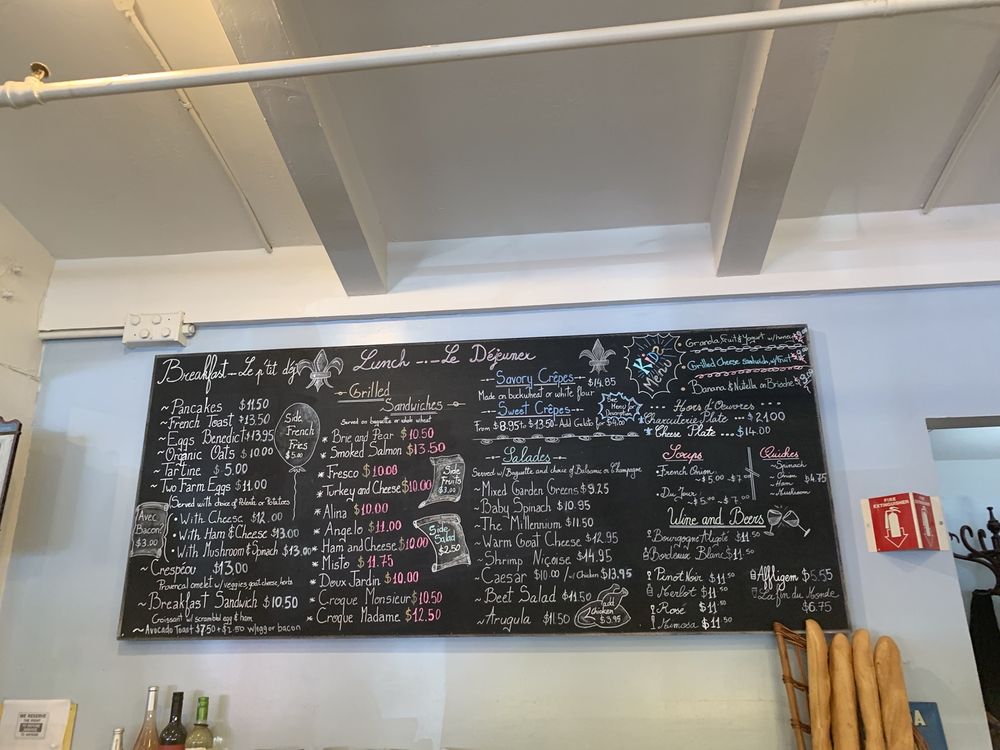 Breakfast - Le p'tit déj
~ Pancakes $11.50
~ French Toast $13.50
~ Eggs Benedict $13.95
~ Organic Oats $10.00
~ Tartine $5.00
~ Two Farm Eggs $11.00
(Served with choice of Polenta or Potatoes)
• With Cheese $12.00
• With Ham & Cheese $13.00
• With Mushroom & Spinach $13.00
~ Crespéou $13.00
Provençal omelet w/ veggies, goat cheese, herbs
~ Breakfast Sandwich $10.50
Croissant w/ scrambl egg & ham
~ Avocado Toast $7.50 + $2.50 w/egg or bacon
Avec
Bacon?
$3.00
Side
French
Fries
$5.00
Lunch --- Le Déjeuner
Grilled
Sandwiches
Served on baguette or whole wheat
* Brie and Pear $10.50
* Smoked Salmon $13.50
* Fresco $10.00
* Turkey and Cheese $10.00
* Alina $10.00
* Angelo $11.00
* Ham and Cheese $10.00
* Misto $11.75
* Doux Jardin $10.00
* Croque Monsieur $10.50
* Croque Madame $12.50
Side
Fruits
$3.00
Side
Salad
$2.50
Savory Crêpes $14.85
Made on buckwheat or white flour
Sweet Crêpes
From $8.95 to $13.50 - Add Gelato for $4.00
See
Menu for
Description
Salades
Served w/ Baguette and choice of Balsamic or Champagne
~ Mixed Garden Greens $9.25
~ Baby Spinach $10.95
~ The Millennium $11.50
~ Warm Goat Cheese $12.95
~ Shrimp Niçoise $14.95
~ Caesar $10.00 / w/ Chicken $13.95
~ Beet Salad $11.50
~ Arugula $11.50
add
chicken
$3.95
Kids
Menu
• Granola Fruit & Yogurt w/ honey
• Grilled Cheese sandwich w/ Fruit
• Banana & Nutella on Brioche
Hors d'Oeuvres
* Charcuterie Plate $21.00
* Cheese Plate ... $14.00
Soups
• French Onion
~ $5.00 ~ $7.00
• Du Jour
~ $5.00 ~ $7.00
Quiches
~ Spinach
~ Onion
~ Ham
~ Mushroom
$4.75
Wine and Beers
Bourgogne Aligoté $11.50
Bordeaux Blanc $11.50
Pinot Noir $11.50
Merlot $11.50
Rose $11.50
Mimosa $11.50
Affligem $6.55
La fin du Monde
$6.75
FIRE
EXTINGUISHER
WE RESERVE
THE RIGHT